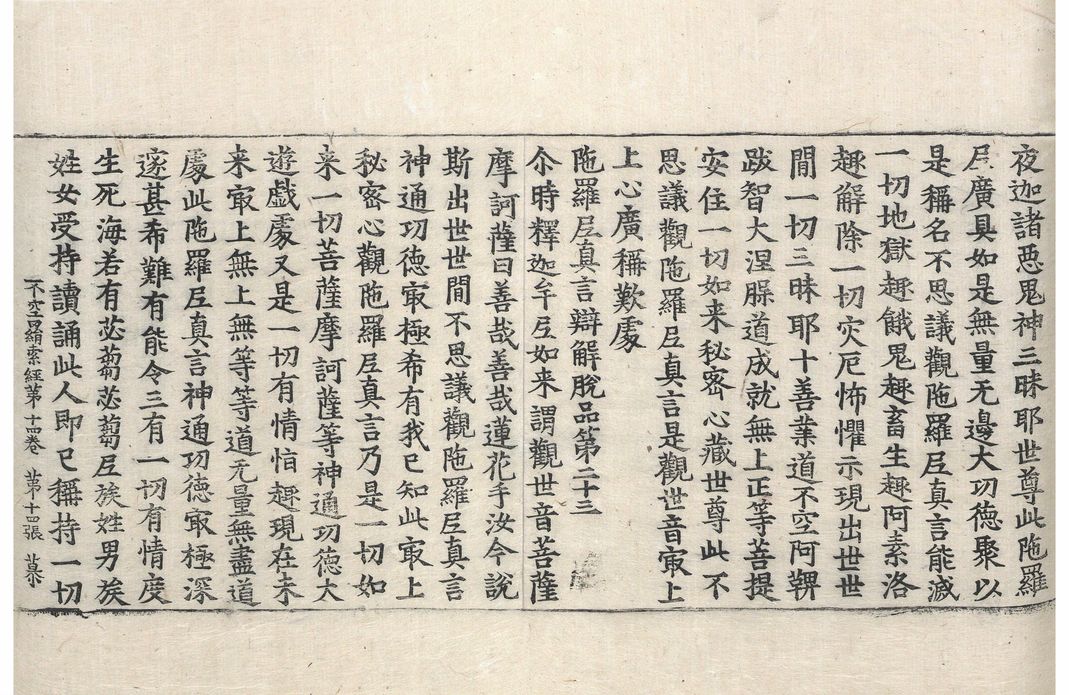 夜迦諸惡鬼神三昧耶世尊此陁羅
𡰱廣具如是無量无邊大功徳聚以
是稱名不思議觀陁羅𡰱真言能滅
一切地獄趣餓鬼趣畜生趣阿素洛
趣解除一切灾厄怖懼示現出世世
間一切三昧耶十善業道不空阿鞞
跋智大涅槃道成就無上正等菩提
安住一切如来秘密心藏世尊此不
思議觀陁羅𡰱真言是觀世音㝡上
上心廣稱歎處
陁羅𡰱真言辯解脫品第二十三
尒時釋迦牟𡰱如来謂觀世音菩薩
摩訶薩曰善哉善哉蓮花手汝今說
斯出世世間不思議觀陁羅𡰱真言
神通功徳㝡極希有我已知此㝡上
秘密心觀陁羅𡰱真言乃是一切如
来一切菩薩摩訶薩等神通功徳大
遊戲處又是一切有情怕趣現在未
来㝡上無上無等等道无量無盡道
處此陁羅𡰱真言神通功徳㝡極深
邃甚希難有能令三有一切有情度
生死海若有苾蒭苾蒭𡰱族姓男族
姓女受持讀誦此人即已稱持一切
不空羂索經第十四卷 第十四張 慕